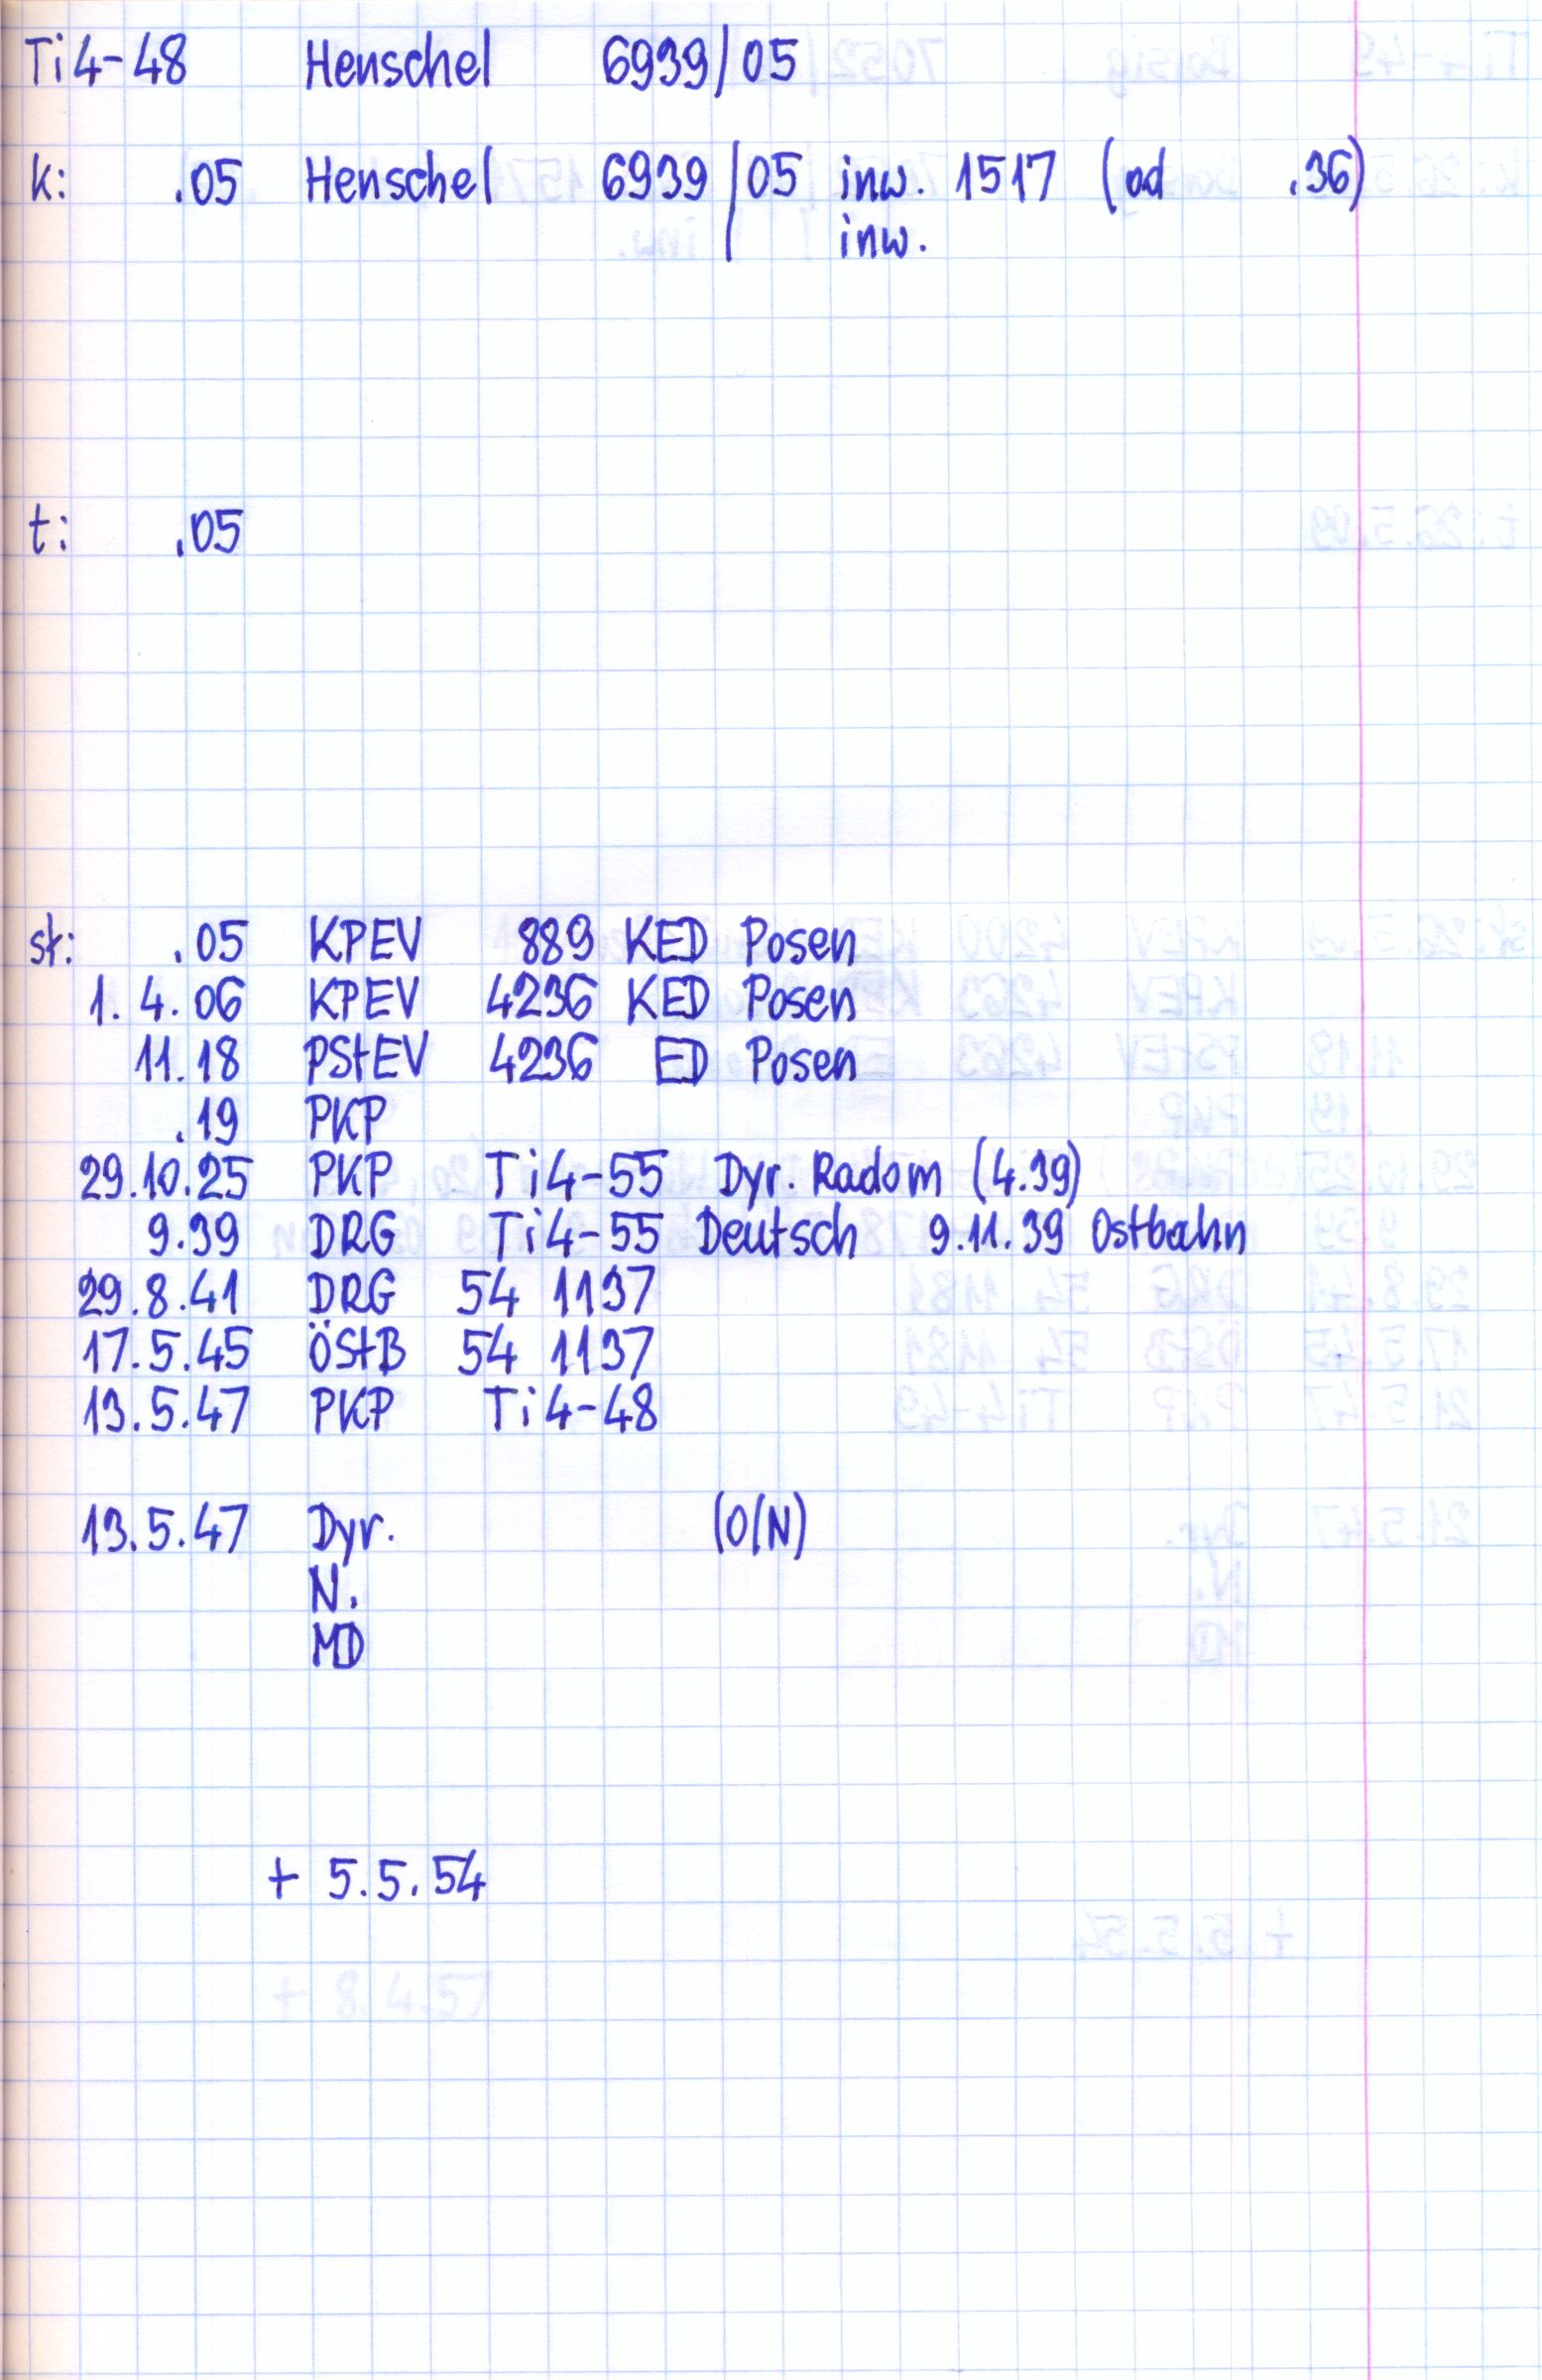 Ti4-48 Henschel 6939/05
k: .05 Henschel 6939/05 inw. 1517 (od .36)
inw.
t: .05
st: .05 KPEV 889 KED Posen
1.4.06 KPEV 4236 KED Posen
11.18 PStEV 4236 ED Posen
.19 PKP
29.10.25 PKP Ti4-55 Dyr. Radom (4.39)
9.39 DRG Ti4-55 Deutsch 9.11.39 Ostbahn
29.8.41 DRG 54 1137
17.5.45 ÖStB 54 1137
13.5.47 PKP Ti4-48
13.5.47 Dyr. (O/N)
N.
MD
+ 5.5.54